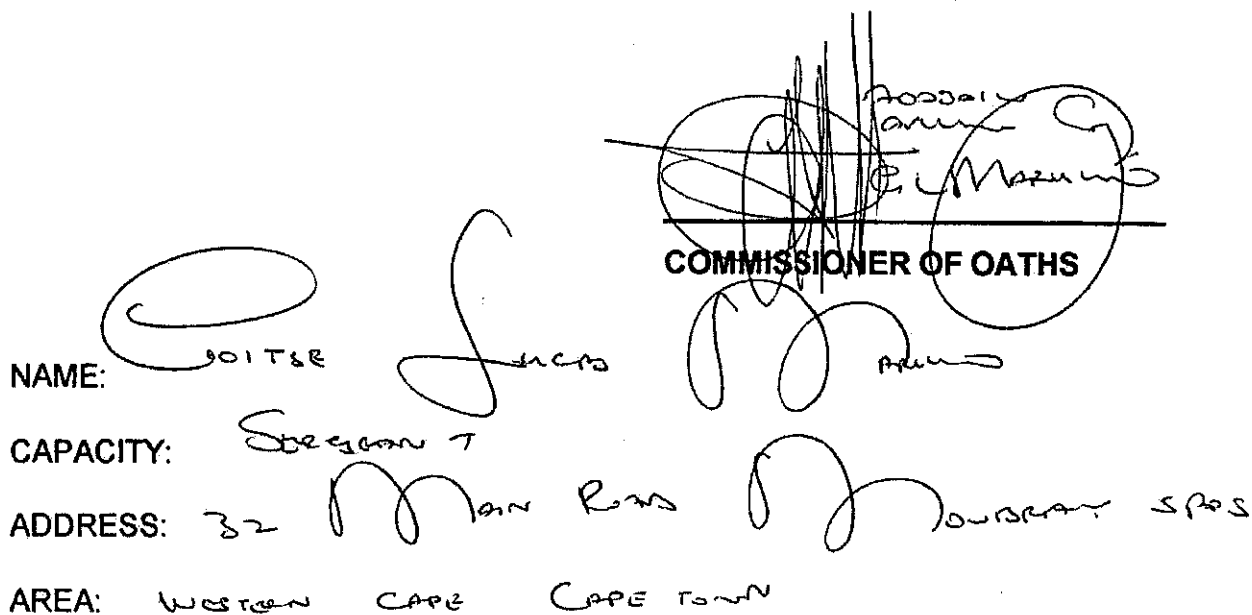 COMMISSIONER OF OATHS
NAME: GOITSE LUCAS
CAPACITY: SERGEANT
ADDRESS: 32 MAIN ROAD MOWBRAY SAPS
AREA: WESTERN CAPE CAPE TOWN